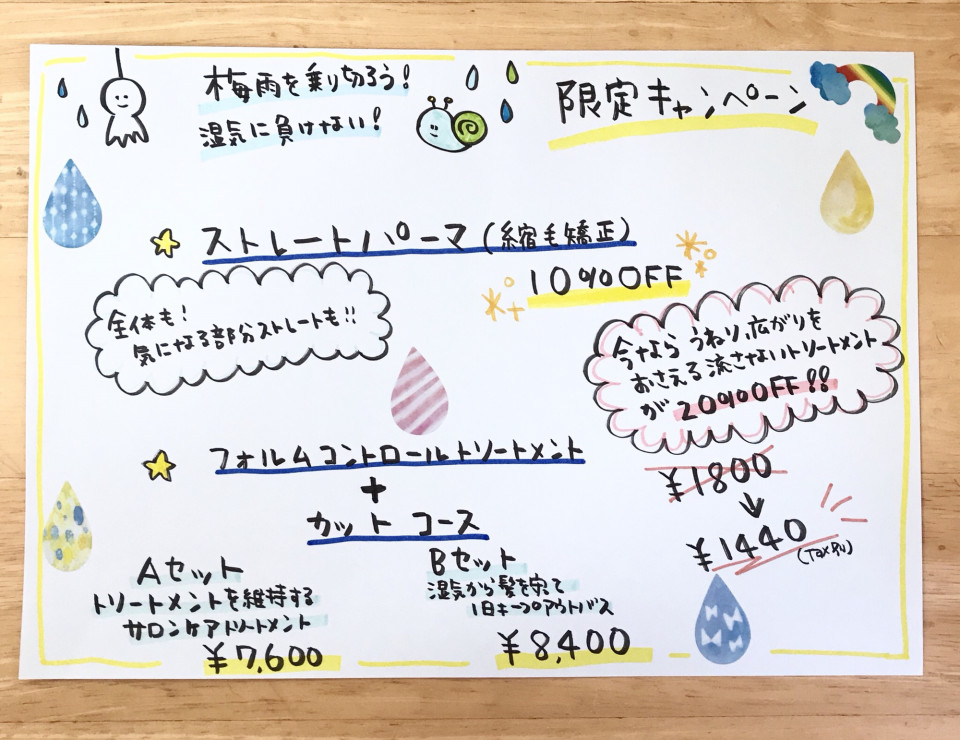 梅雨を乗り切ろう!
湿気に負けない!
限定キャンペーン
ストレートパーマ(縮毛矯正)
10%OFF
全体も!
気になる部分ストレートも!!
今ならうねり、広がりを
おさえる流さないトリートメント
が20%OFF!!
¥1800
¥1440
フォルムコントロールトリートメント
+
カットコース
Aセット
トリートメントを維持する
サロンケアトリートメント
¥7,600
Bセット
湿気から髪を守って
1日キープのアウトバス
¥8,400